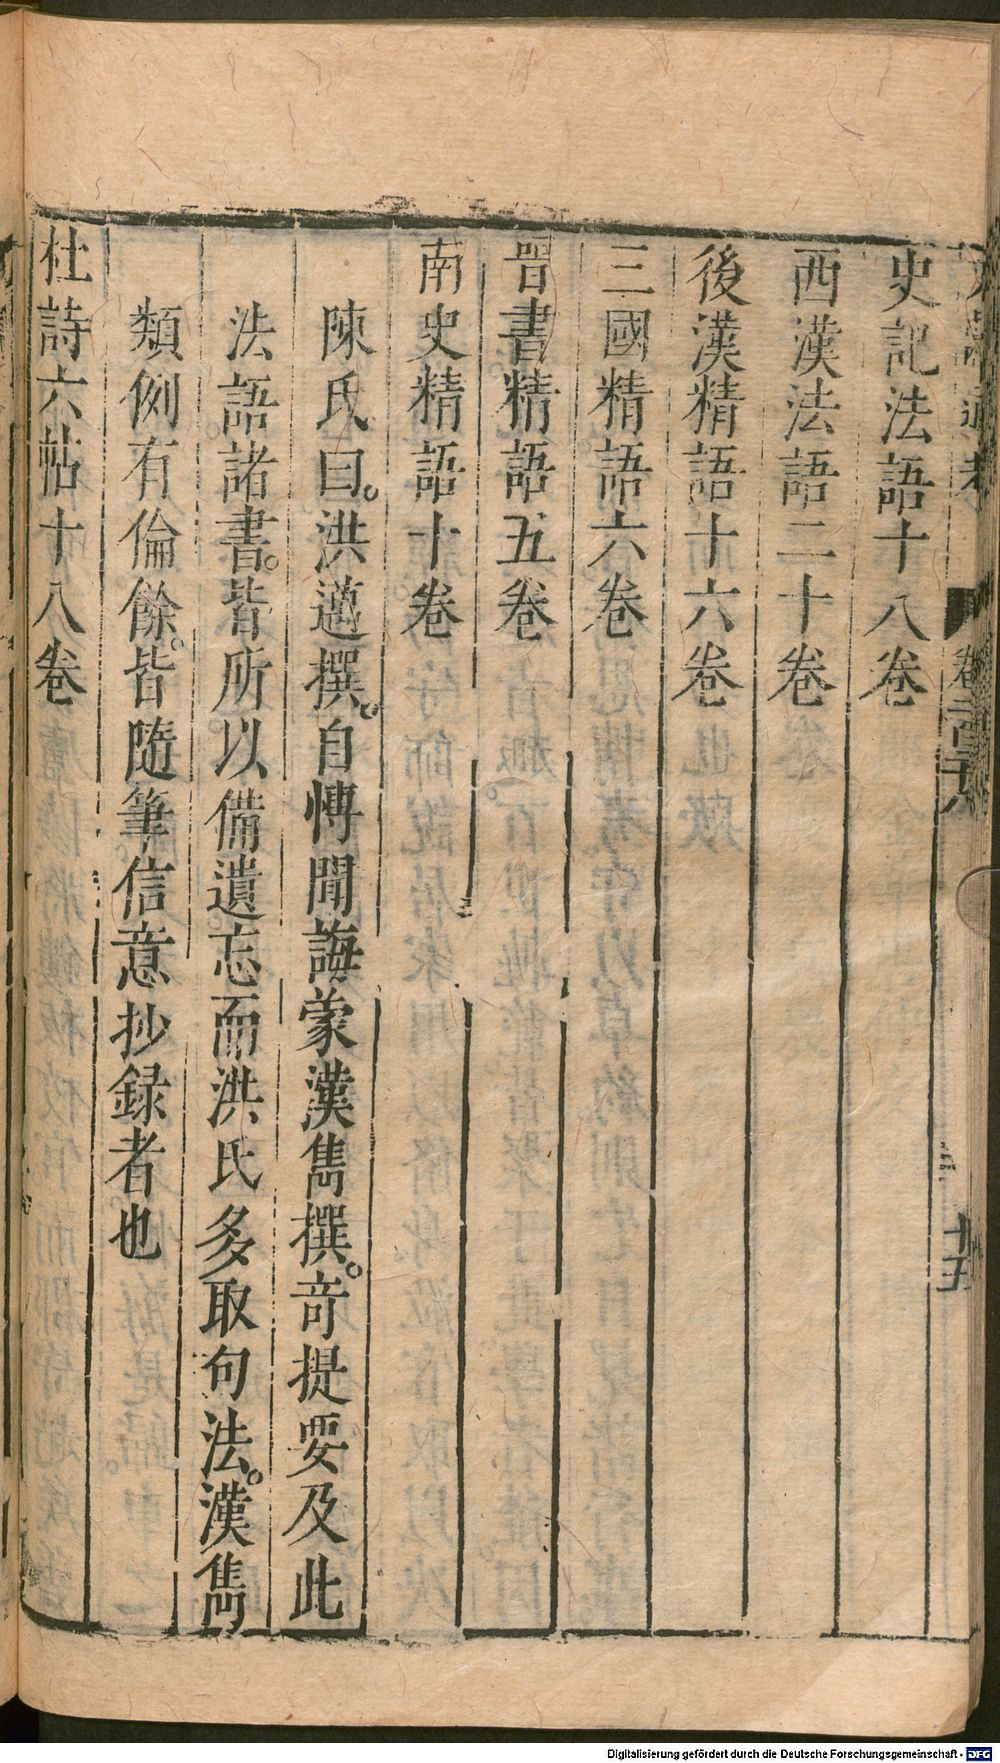 史記法語十八卷
西漢法語二十卷
後漢精語十六卷
三國精語六卷
晉書精語五卷
南史精語十卷
陳氏曰。洪邁撰。自博聞誨蒙漢雋撰。奇提要及此
法語諸書。皆所以備遺忘而洪氏多取句法。漢雋
類例有倫餘。皆隨筆信意抄録者也
杜詩六帖十八卷
十五
Digitalisierung gefördert durch die Deutsche Forschungsgemeinschaft - DFG